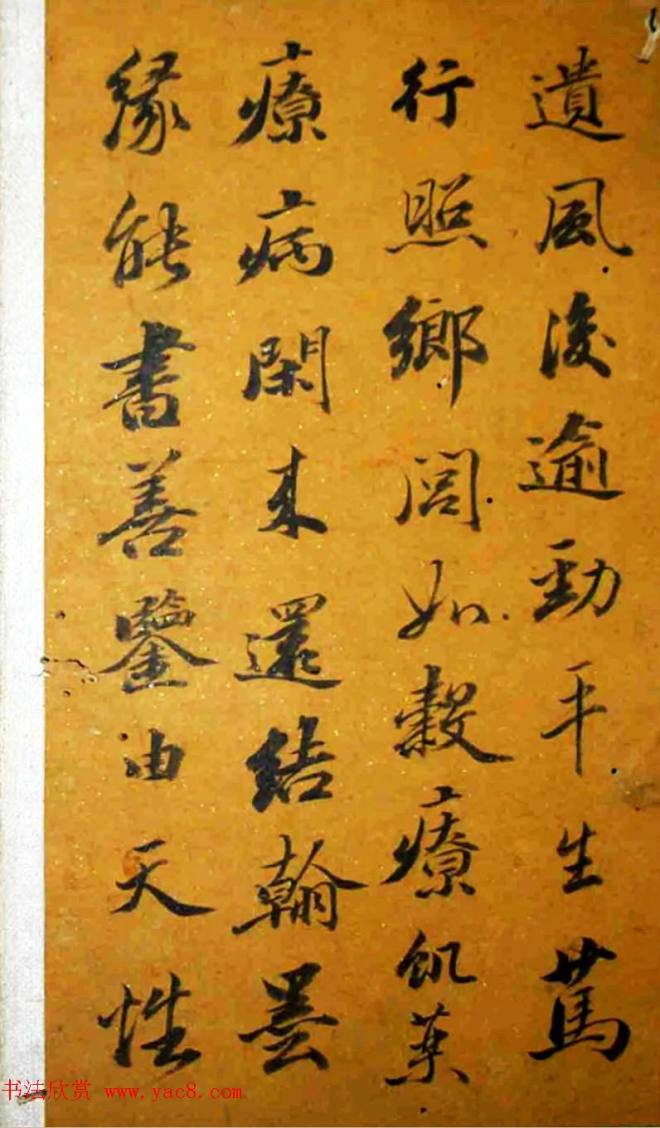 遺風後逾勁平生篤
行照鄉閭如穀療飢藥
療病閑来還結翰墨
緣能書善鑒由天性
书法欣赏 www.yac8.com